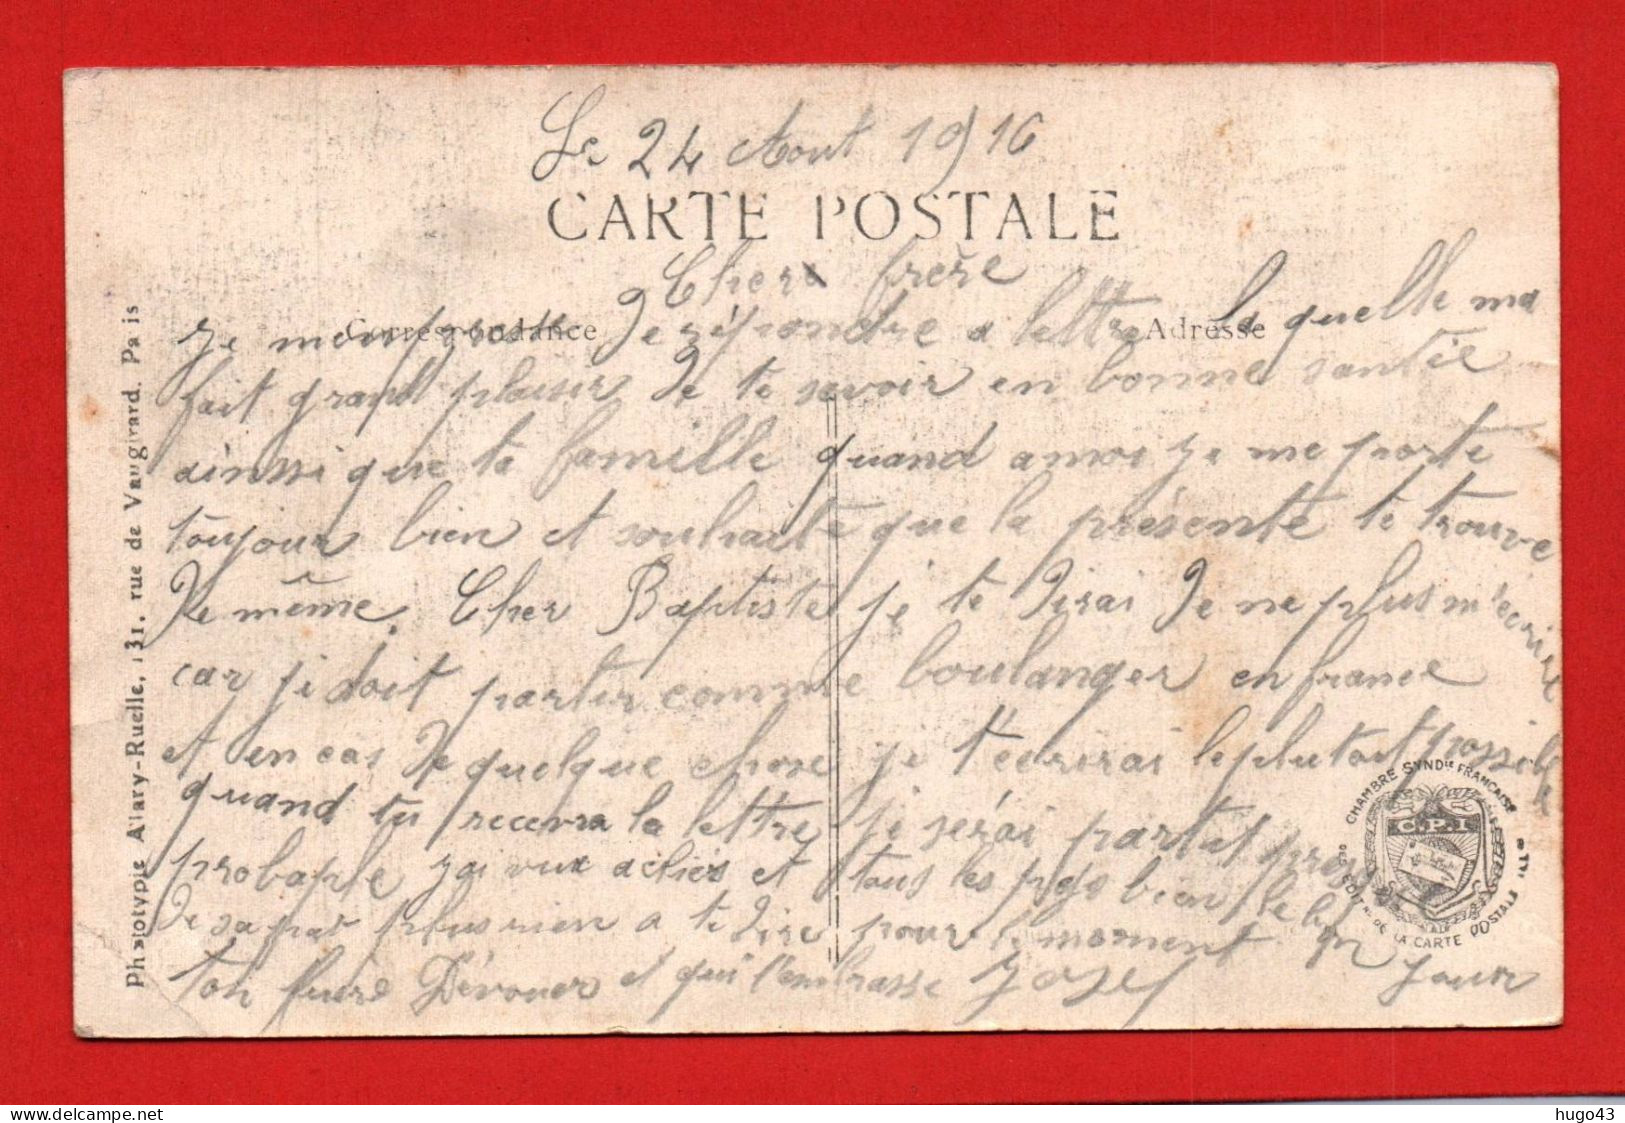 Le 24 Aout 1916
CARTE POSTALE
Cher frère
Correspondance
Adresse
Je mempresse De répondre a lettre la quelle ma
fait grand plaisir De te savoir en bonne santie
ainssi que ta famille quand a moi je me porte
toujour bien et souhaite que la présente te trouve
De même. Cher Baptiste je te Dirai De ne plus m'ecrire
car je doit partir comme boulanger en france
et en cas De quelque chose je t'ecrirai le plutout possible
quand tu recevra la lettre je serai partit
probaple et tous les bien le
De sa pas plus rien a te Dire pour le moment
ton frère Dévouer et qui t'embrasse Josef
Jour
Phototypie A'lary-Ruelle, 131, rue de Vaugirard. Pa is
CHAMBRE SYNDle FRANÇAISE
C.P.I
DE LA CARTE POSTALE
hugo43